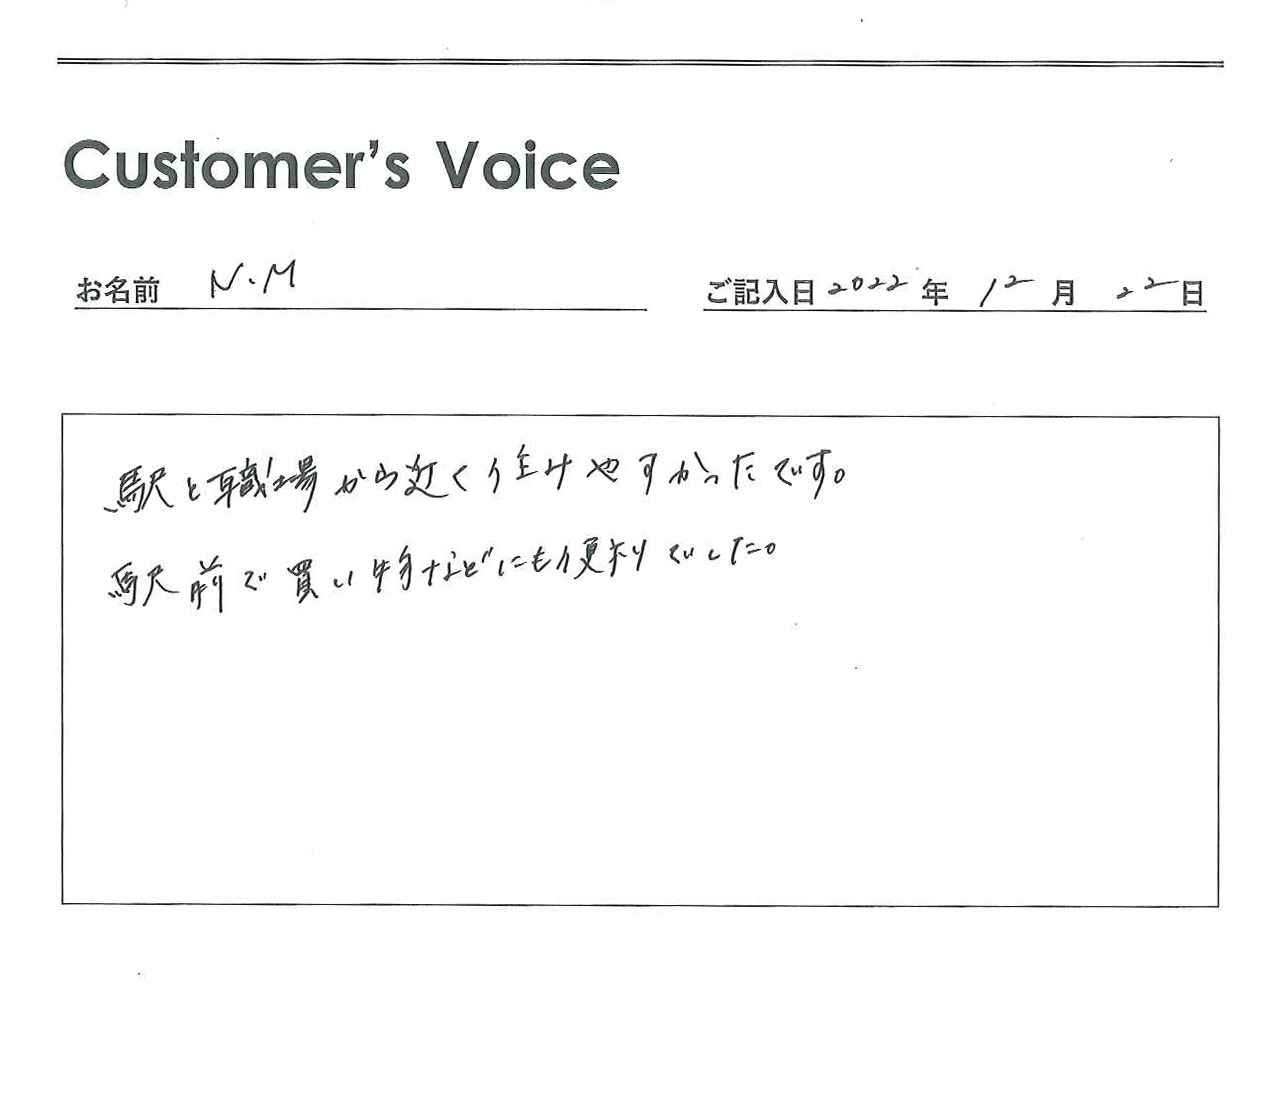 Customer's Voice
お名前 N.M
ご記入日 2022 年 12 月 22 日
駅と職場から近く住みやすかったです。
駅前で買い物などにも便利でした。